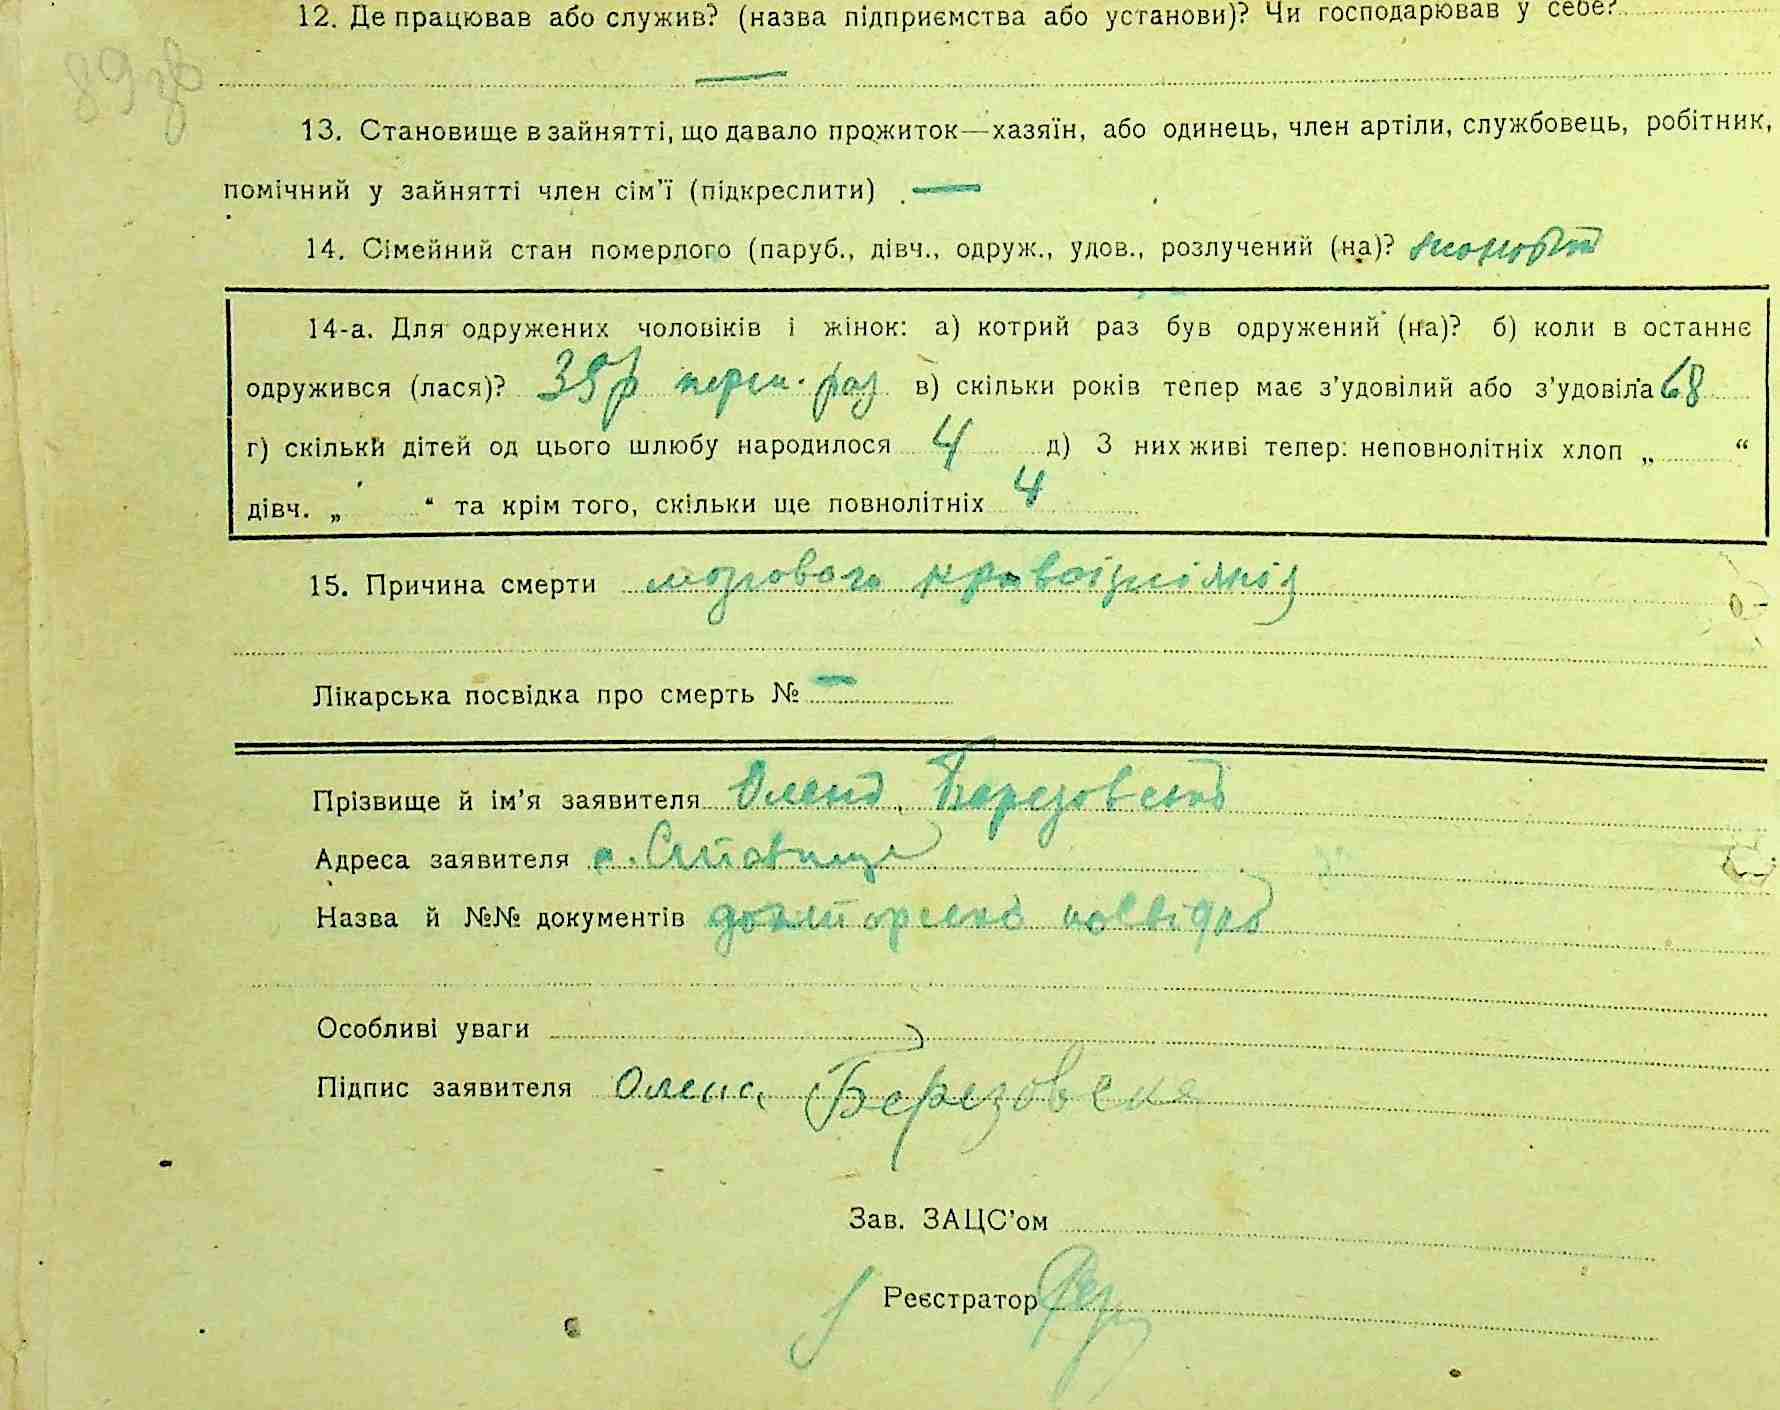 12. Де працював або служив? (назва підприємства або установи)? Чи господарював у себе?
89 зв
13. Становище в зайнятті, що давало прожиток—хазяїн, або одинець, член артіли, службовець, робітник,
помічний у зайнятті член сім'ї (підкреслити) —
14. Сімейний стан померлого (паруб., дівч., одруж., удов., розлучений (на)?
14-а. Для одружених чоловіків і жінок: а) котрий раз був одружений (на)? б) коли в останнє
одружився (лася)? 39 р перш. раз в) скільки років тепер має з'удовілий або з'удовіла 68
г) скільки дітей од цього шлюбу народилося 4 д) З них живі тепер: неповнолітніх хлоп „ “
дівч. „ “ та крім того, скільки ще повнолітніх 4
15. Причина смерти
Лікарська посвідка про смерть № —
Прізвище й ім'я заявителя Олена Березовська
Адреса заявителя с. Ставище
Назва й №№ документів докторська посвідка
Особливі уваги
Підпис заявителя Олена Березовска
Зав. ЗАЦС'ом
Реєстратор